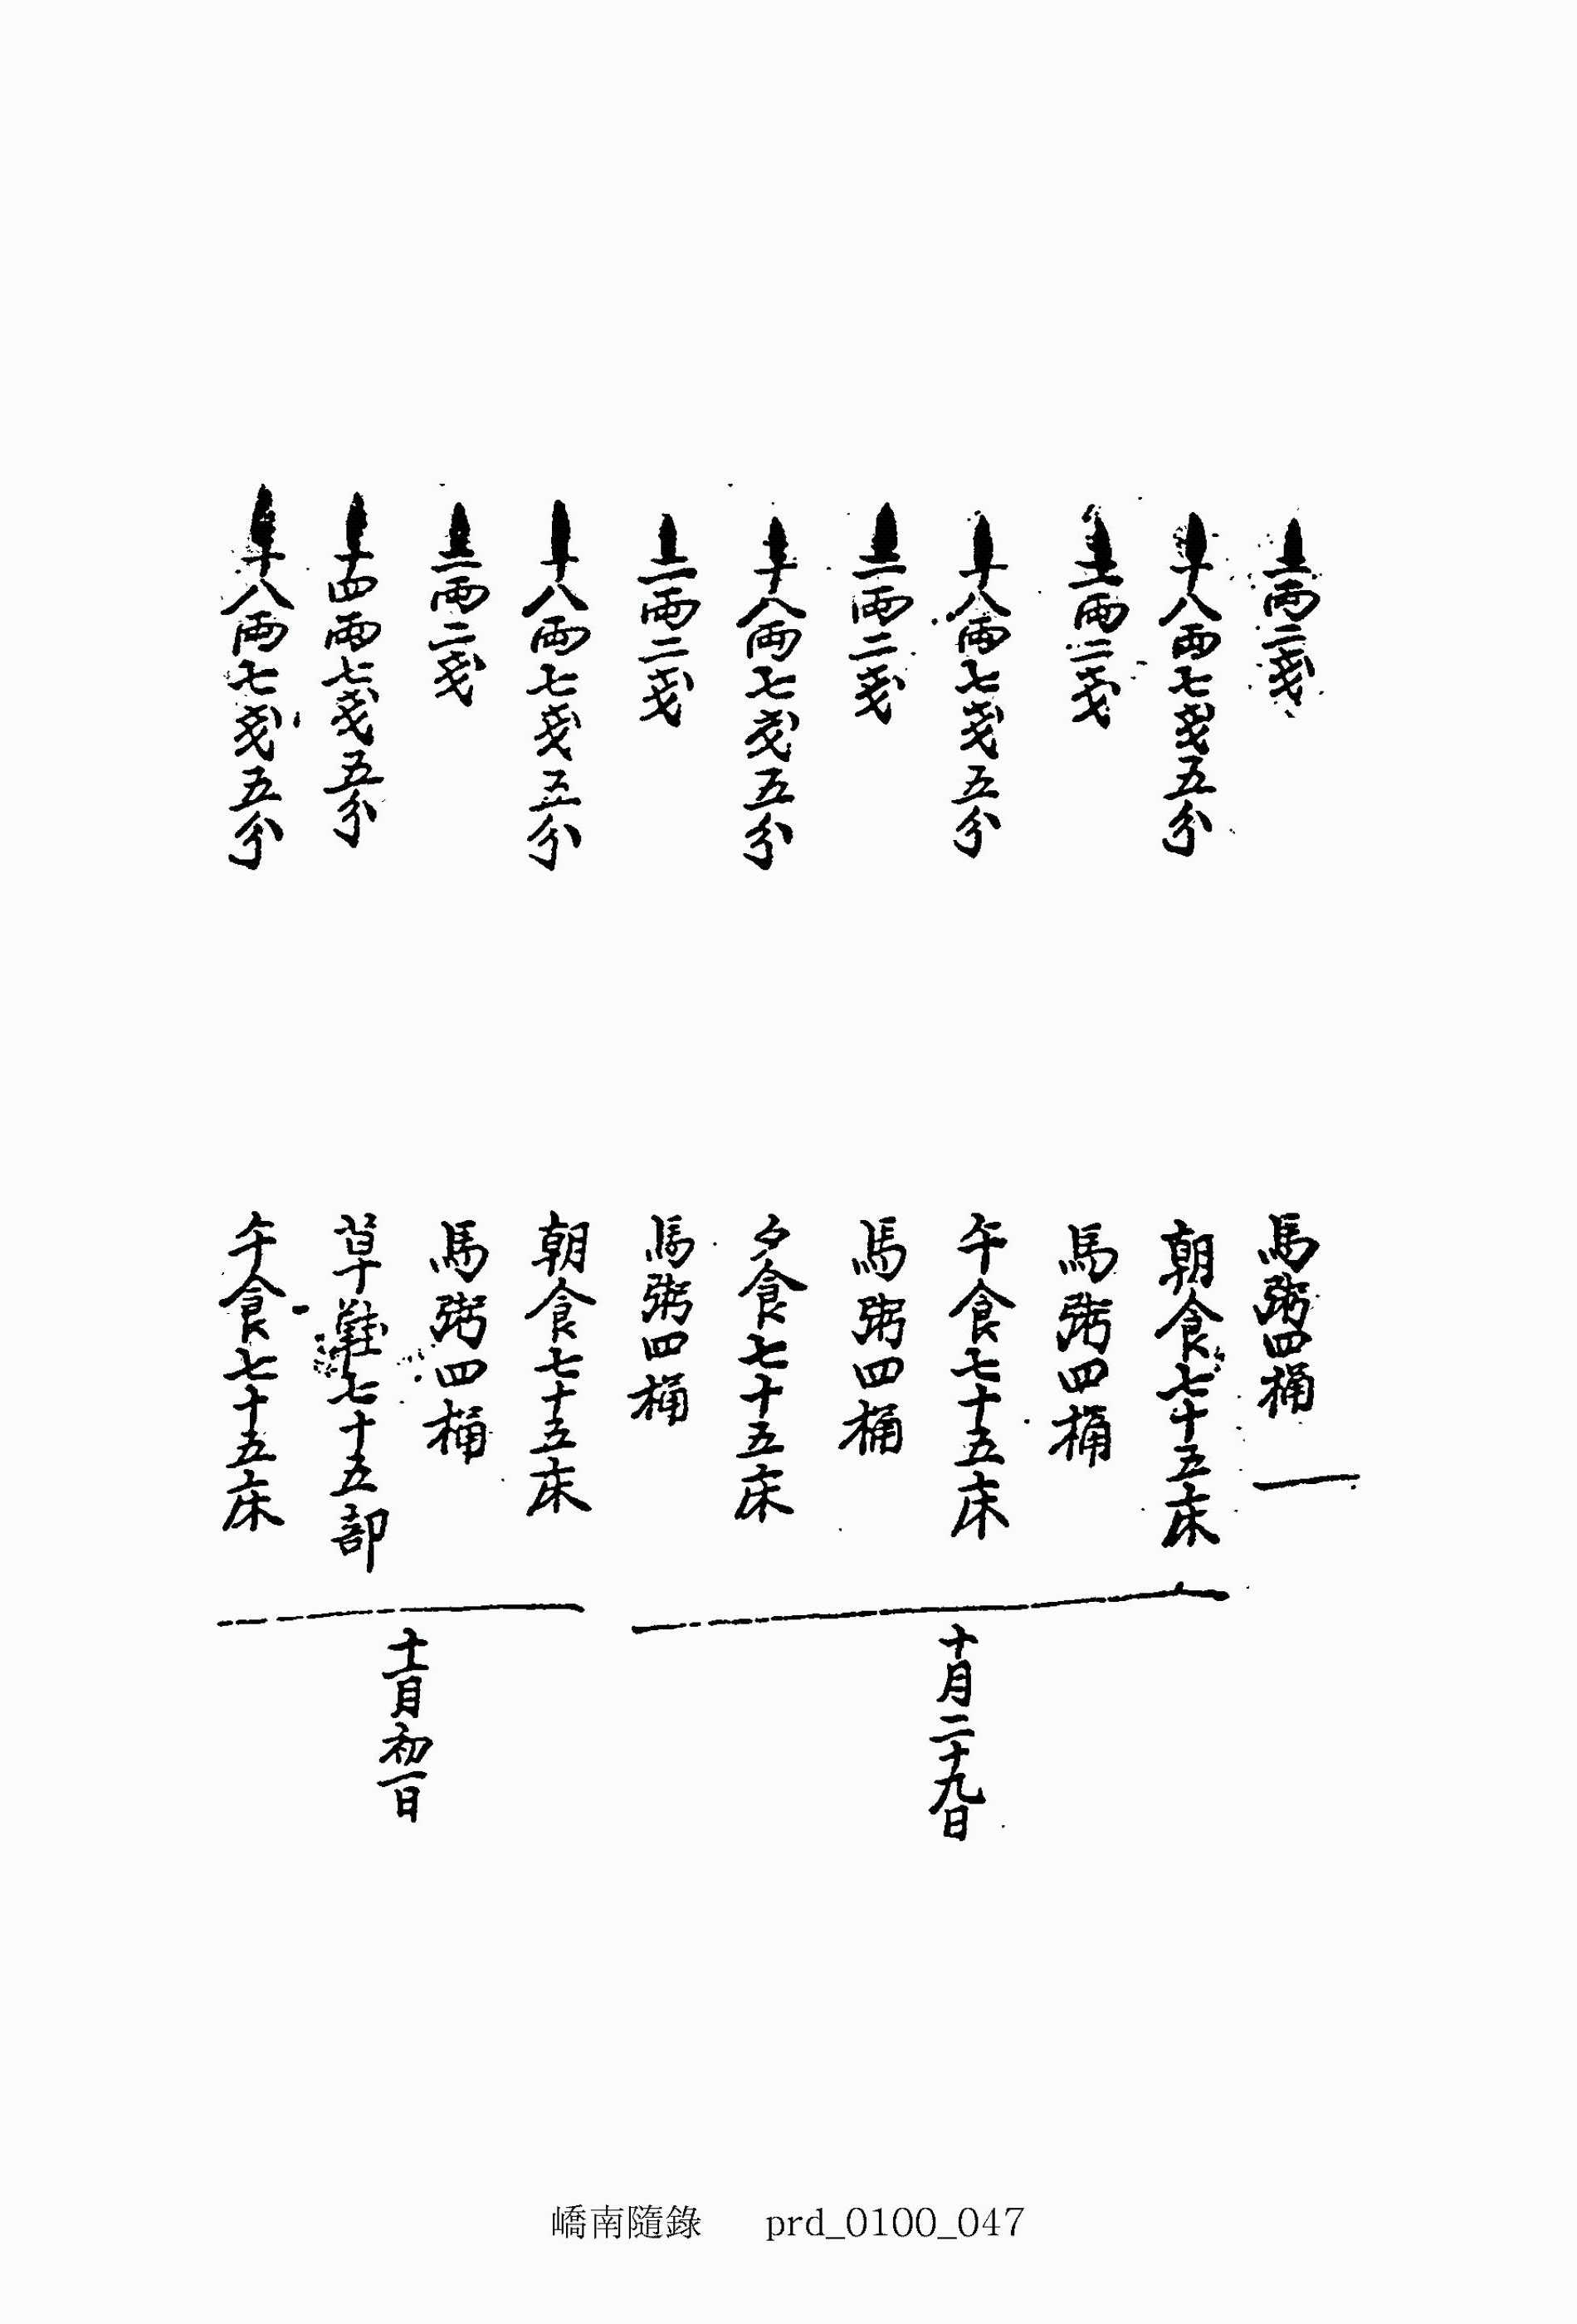 二兩二戔 馬粥四桶
十八兩七戔五分 朝食七十五床
二兩二戔 馬粥四桶
十八兩七戔五分 午食七十五床
二兩二戔 馬粥四桶
十八兩七戔五分 夕食七十五床
二兩二戔 馬粥四桶
十月二十九日
十八兩七戔五分 朝食七十五床
二兩二戔 馬粥四桶
十四兩七戔五分 草鞋七十五部
十八兩七戔五分 午食七十五床
十一月初一日
嶠南隨錄 prd_0100_047